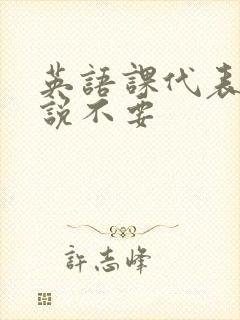 英語課代表
說不要
許志峰